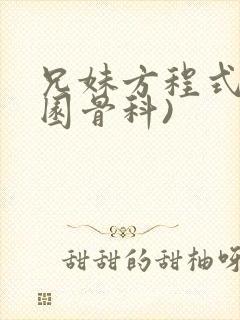 兄妹方程式
園骨科)
甜甜的甜柚呀